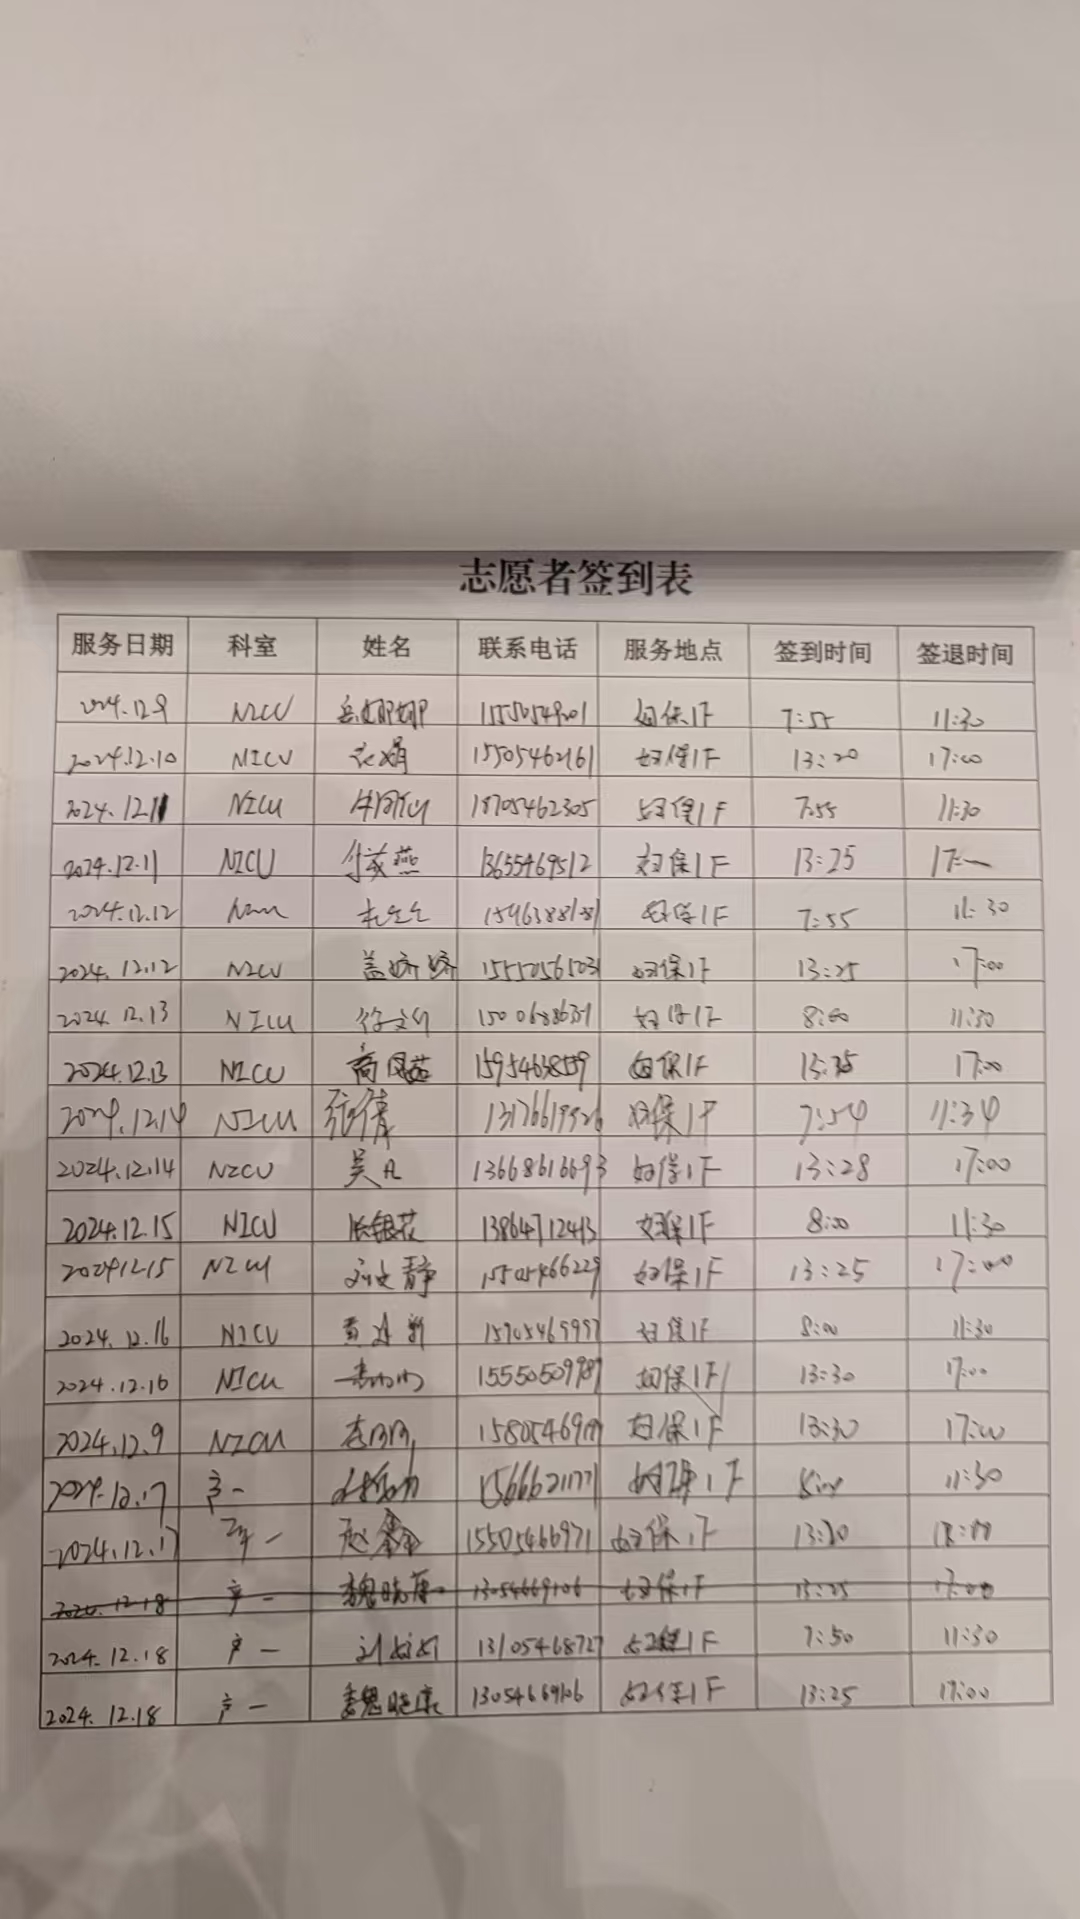 志愿者签到表
服务日期 科室 姓名 联系电话 服务地点 签到时间 签退时间
2024.12.9 NICU 岳娜娜 15550549201 妇保1F 7:55 11:30
2024.12.10 NICU 张娟 15505462161 妇保1F 13:20 17:00
2024.12.11 NICU 18705462305 妇保1F 7:55 11:30
2024.12.11 NICU 燕 13655469512 妇保1F 13:25 17:
2024.12.12 妇保1F 7:55 11:30
2024.12.12 NICU 盖娇娇 15550565031 妇保1F 13:25 17:00
2024.12.13 NICU 徐文 妇保1F 8:00 11:30
2024.12.13 NICU 商凤茹 妇保1F 17:00
2024.12.14 NICU 张倩 妇保1F 7:54 11:34
2024.12.14 NICU 吴凡 13668616693 妇保1F 13:28 17:00
2024.12.15 NICU 张银花 13864712413 妇保1F 8:00 11:30
2024.12.15 NICU 刘史静 15505466229 妇保1F 13:25 17:00
2024.12.16 NICU 黄 新 妇保1F 8:00 11:30
2024.12.16 NICU 妇保1F 13:30 17:00
2024.12.9 NICU 妇保1F 13:30 17:00
2024.12.17 产一 妇保1F 11:30
2024.12.17 产一 赵鑫 15505466971 妇保1F 18:00
2024.12.18 产一 魏晓康 13054669106 妇保1F 13:25 17:00
2024.12.18 产一 13105468727 妇保1F 7:50 11:30
2024.12.18 产一 魏晓康 13054669106 妇保1F 13:25 17:00